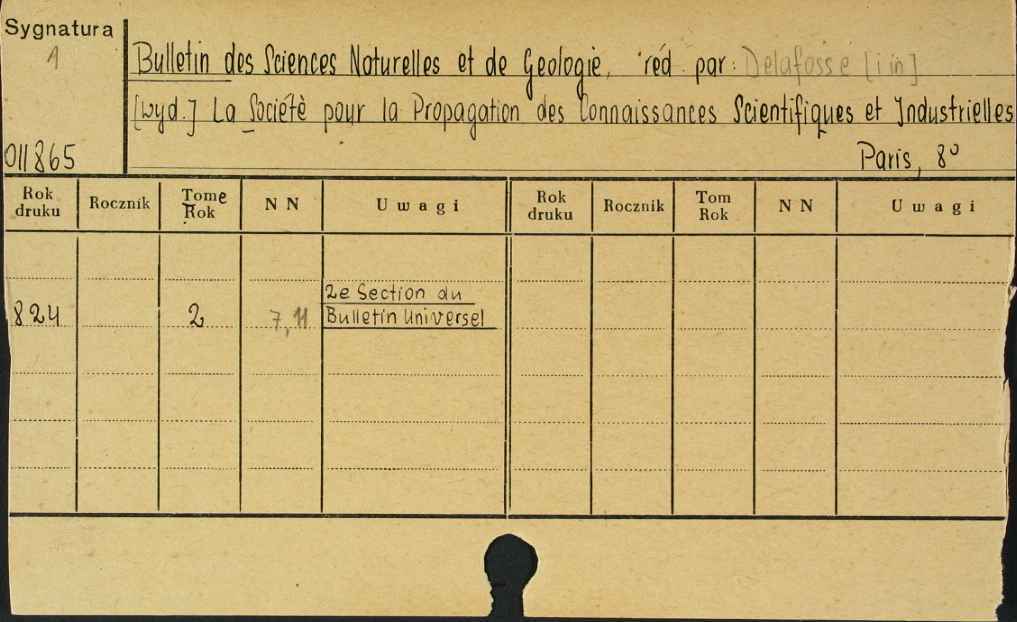 Sygnatura
1
Bulletin des Sciences Naturelles et de Geologie, réd. par: Delafosse [i in]
[wyd.] La Sociétè pour la Propagation des Connaissances Scientifiques et Industrielles
011865
Paris, 8°
Rok druku Rocznik Tome Rok NN Uwagi Rok druku Rocznik Tom Rok NN Uwagi
2e Section du
824 2 7,11 Bulletin Universel